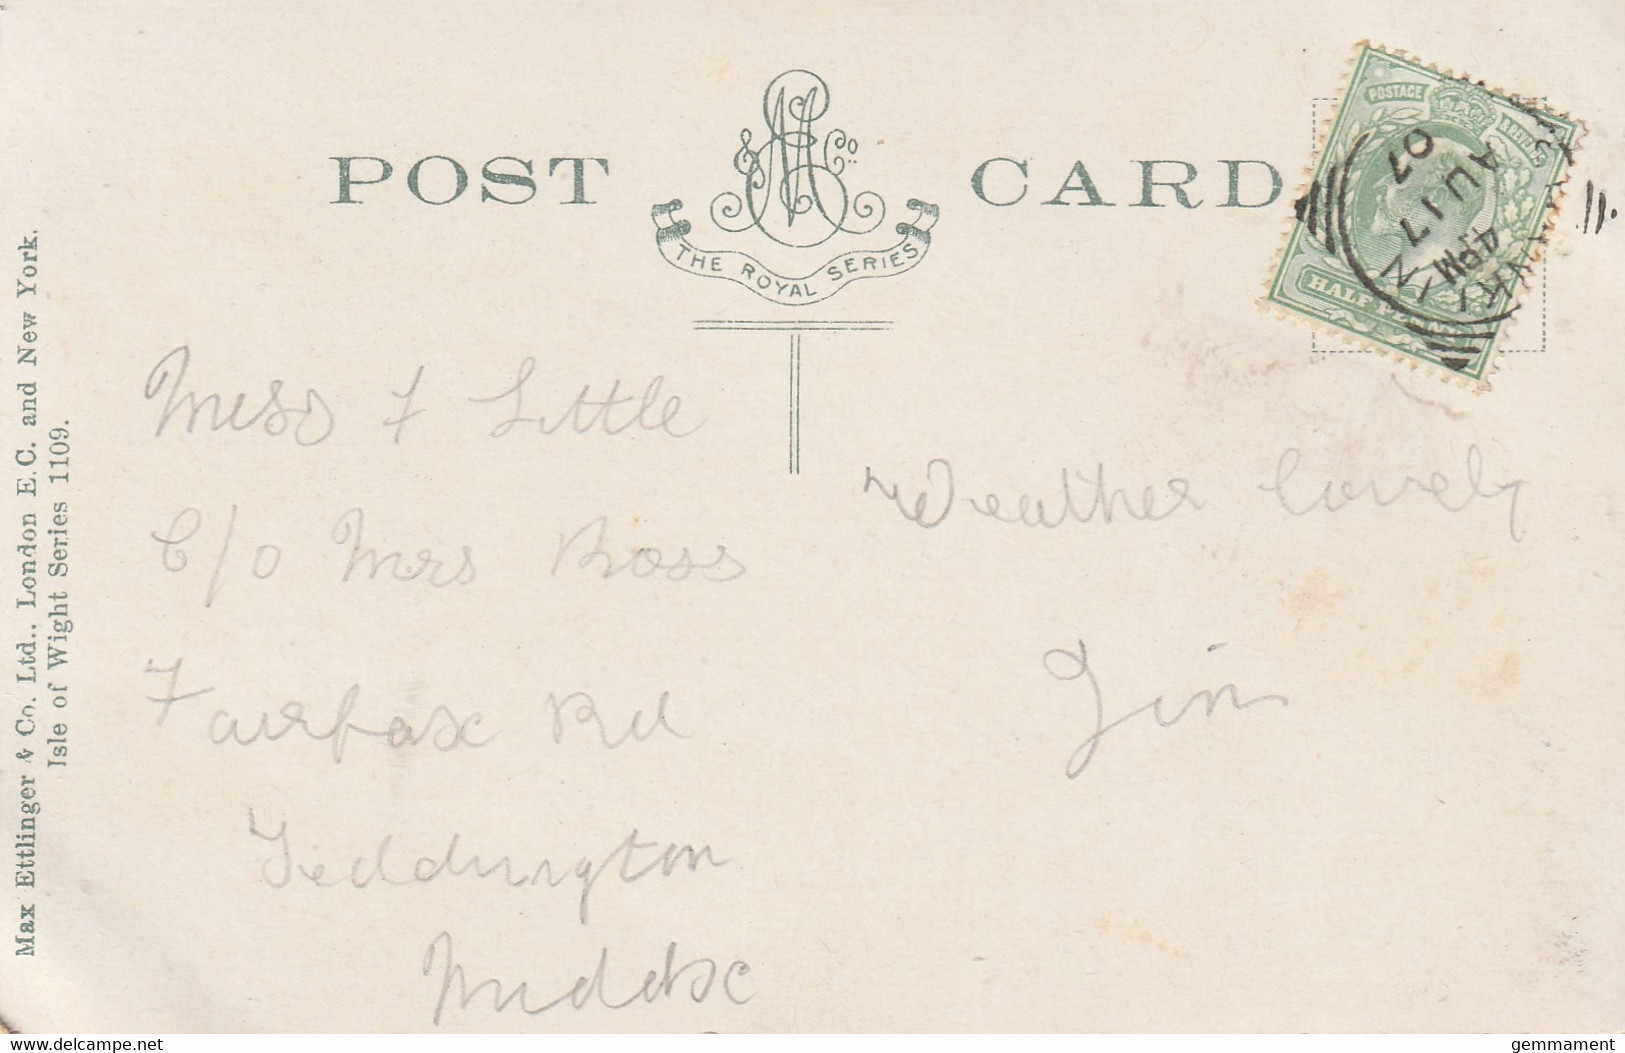 POST CARD
& Co.
THE ROYAL SERIES
POSTAGE
HALF PENNY
4 PM
AU 17
07
Max Ettlinger & Co. Ltd., London E.C. and New York.
Isle of Wight Series 1109.
Miss F Little
C/o Mrs Ross
Fairfax Rd
Teddington
Middsx
Weather lovely
Jim
delcampe.net
gemmament